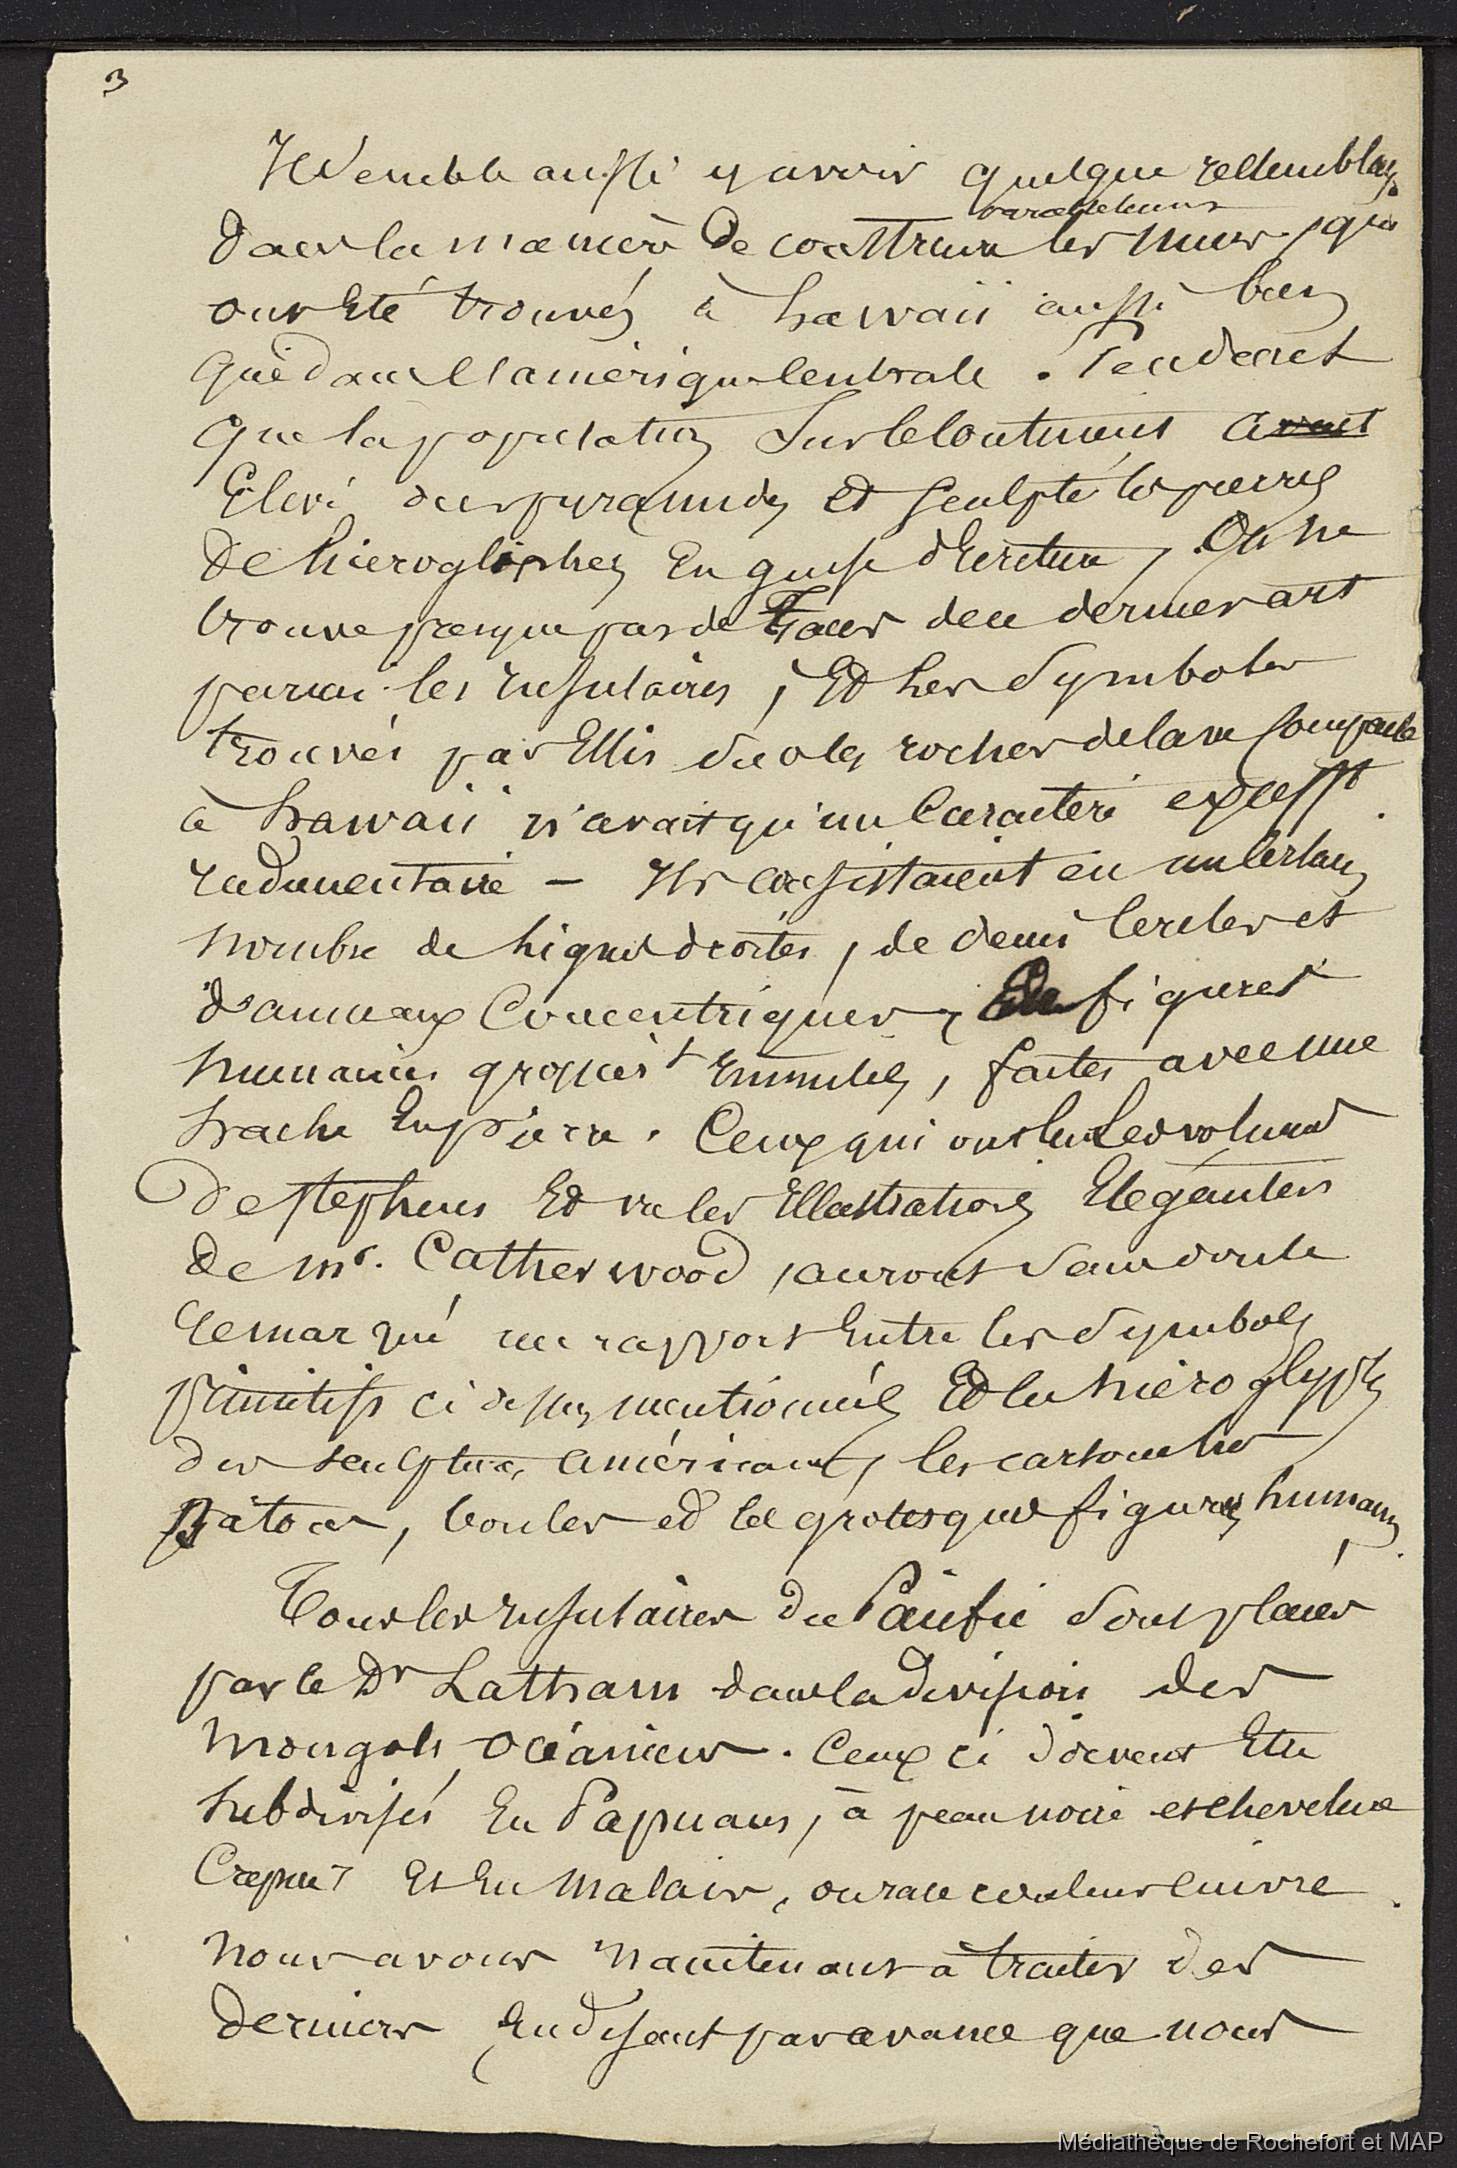 3
Il semble aussi y avoir quelque ressemblance
dans la manière de construire les murs, qui
ont été trouvés à hawaii aussi bien
que dans l'amérique centrale. Pendant
que la population sur le continent avait
Elevé des pyramides et sculpté les pierres
de hieroglyphes En guise d'Ecriture, On ne
trouve presque pas de Traces de ce dernier art
parmi les insulaires, et les symboles
trouvés par Ellis sur les rochers de lave compacte
à hawaii n'avait qu'un caractère excessif
rudimentaire – Ils consistaient en un certain
nombre de lignes droites, de demi cercles et
d'anneaux Concentriques, de figures
humaines grossièrt Ennubles, faites avec une
hache En pierre. Ceux qui ont lu Les volumes
de Stephens Et vu les Illustrations Elégantes
de mr. Catherwood, auront sans doute
remarqué un rapport Entre les symboles
primitifs ci dessus mentionnés Et les hiéroglyphes
des sculptures américaines, les cartouches
bâtons, boules et les grotesques figures humaines.
Tous les insulaires du Pacific sont placés
par le Dr Latham dans la division des
mongols océaniens. Ceux ci doivent Etre
subdivisés En Papuans, à peau noire et chevelure
Crepue Et En Malais, ou race couleur cuivre.
nous avons maintenant à traiter des
derniers En disant par avance que nous
Médiathèque de Rochefort et MAP